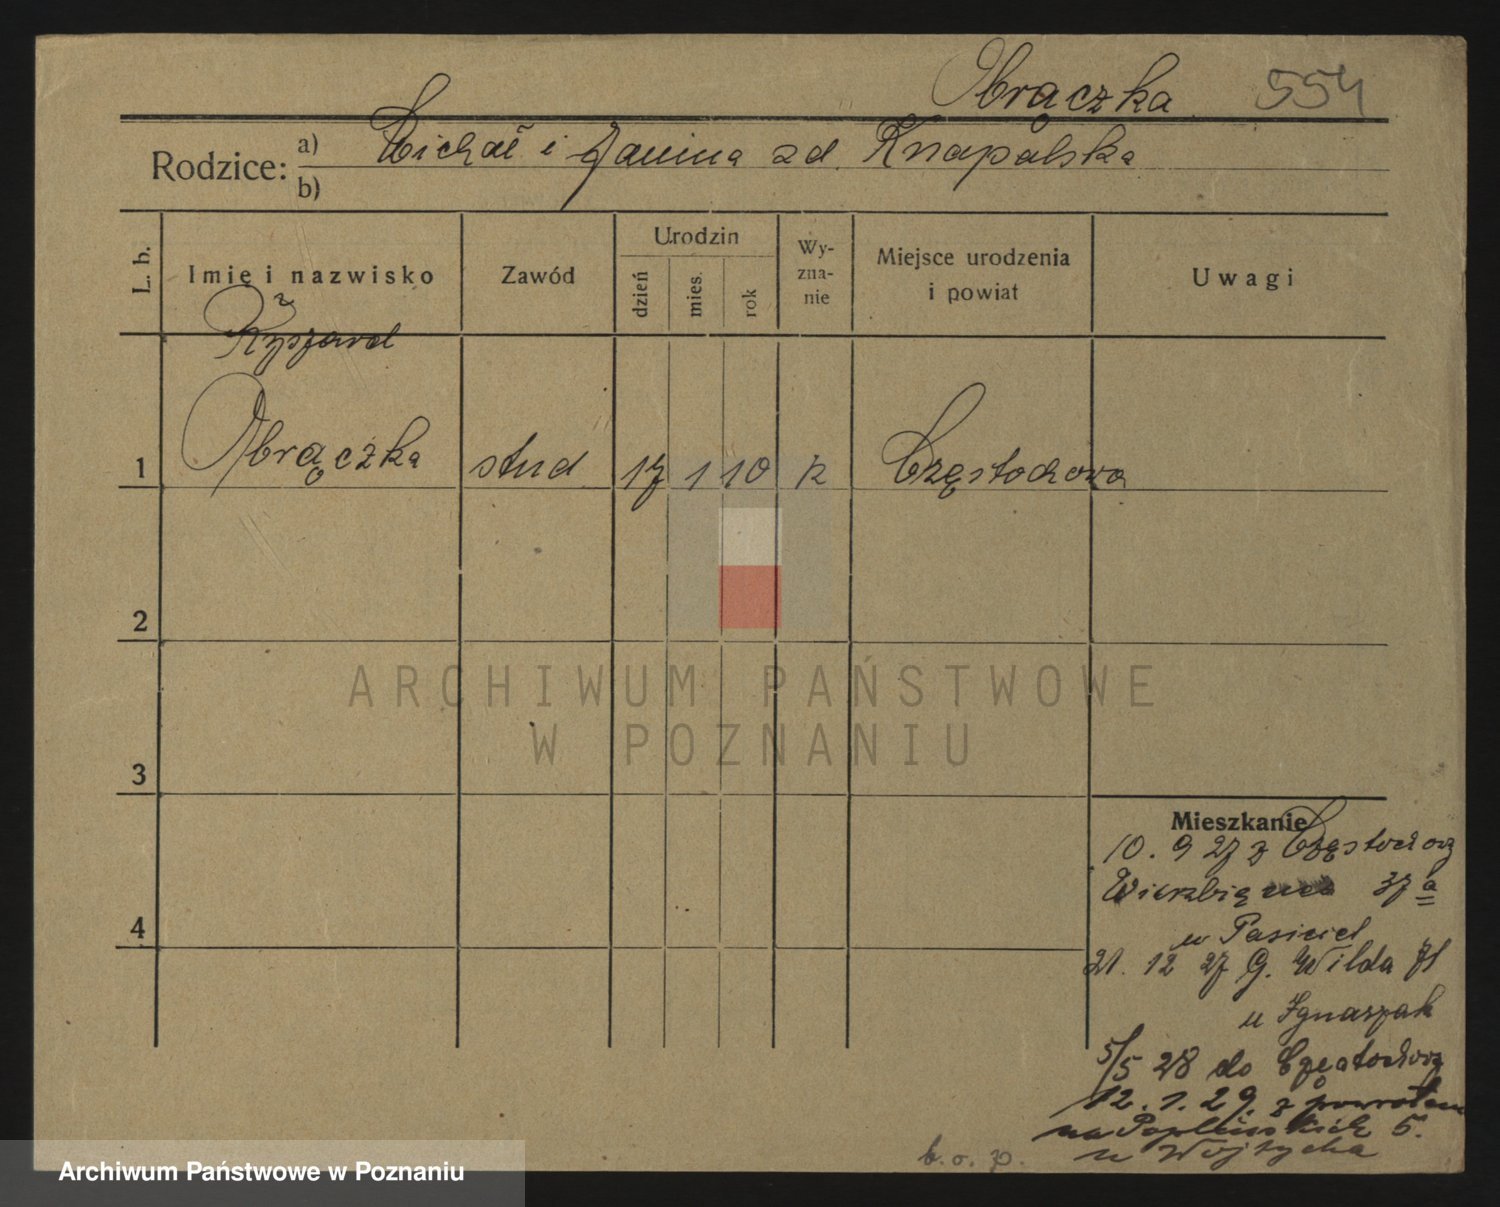 Obrączka 554
Rodzice: a) Michał i Janina zd. Knapalska
b)
L. b.
Imię i nazwisko
Zawód
Urodzin
dzień
mies.
rok
Wy-
zna-
nie
Miejsce urodzenia
i powiat
Uwagi
Ryszard
1 Obrączka stud 17 1 10 k Częstochowa
2
3
4
Mieszkanie
10. 9 27 z Częstochowy
37 a
u
21. 12 27 G. Wilda 71
u Ignaszak
5/5 28 do Częstochowy
12. 1. 29. z powrotem
na 5.
u Wojtycha
b. o. p.
ARCHIWUM PAŃSTWOWE
W POZNANIU
Archiwum Państwowe w Poznaniu